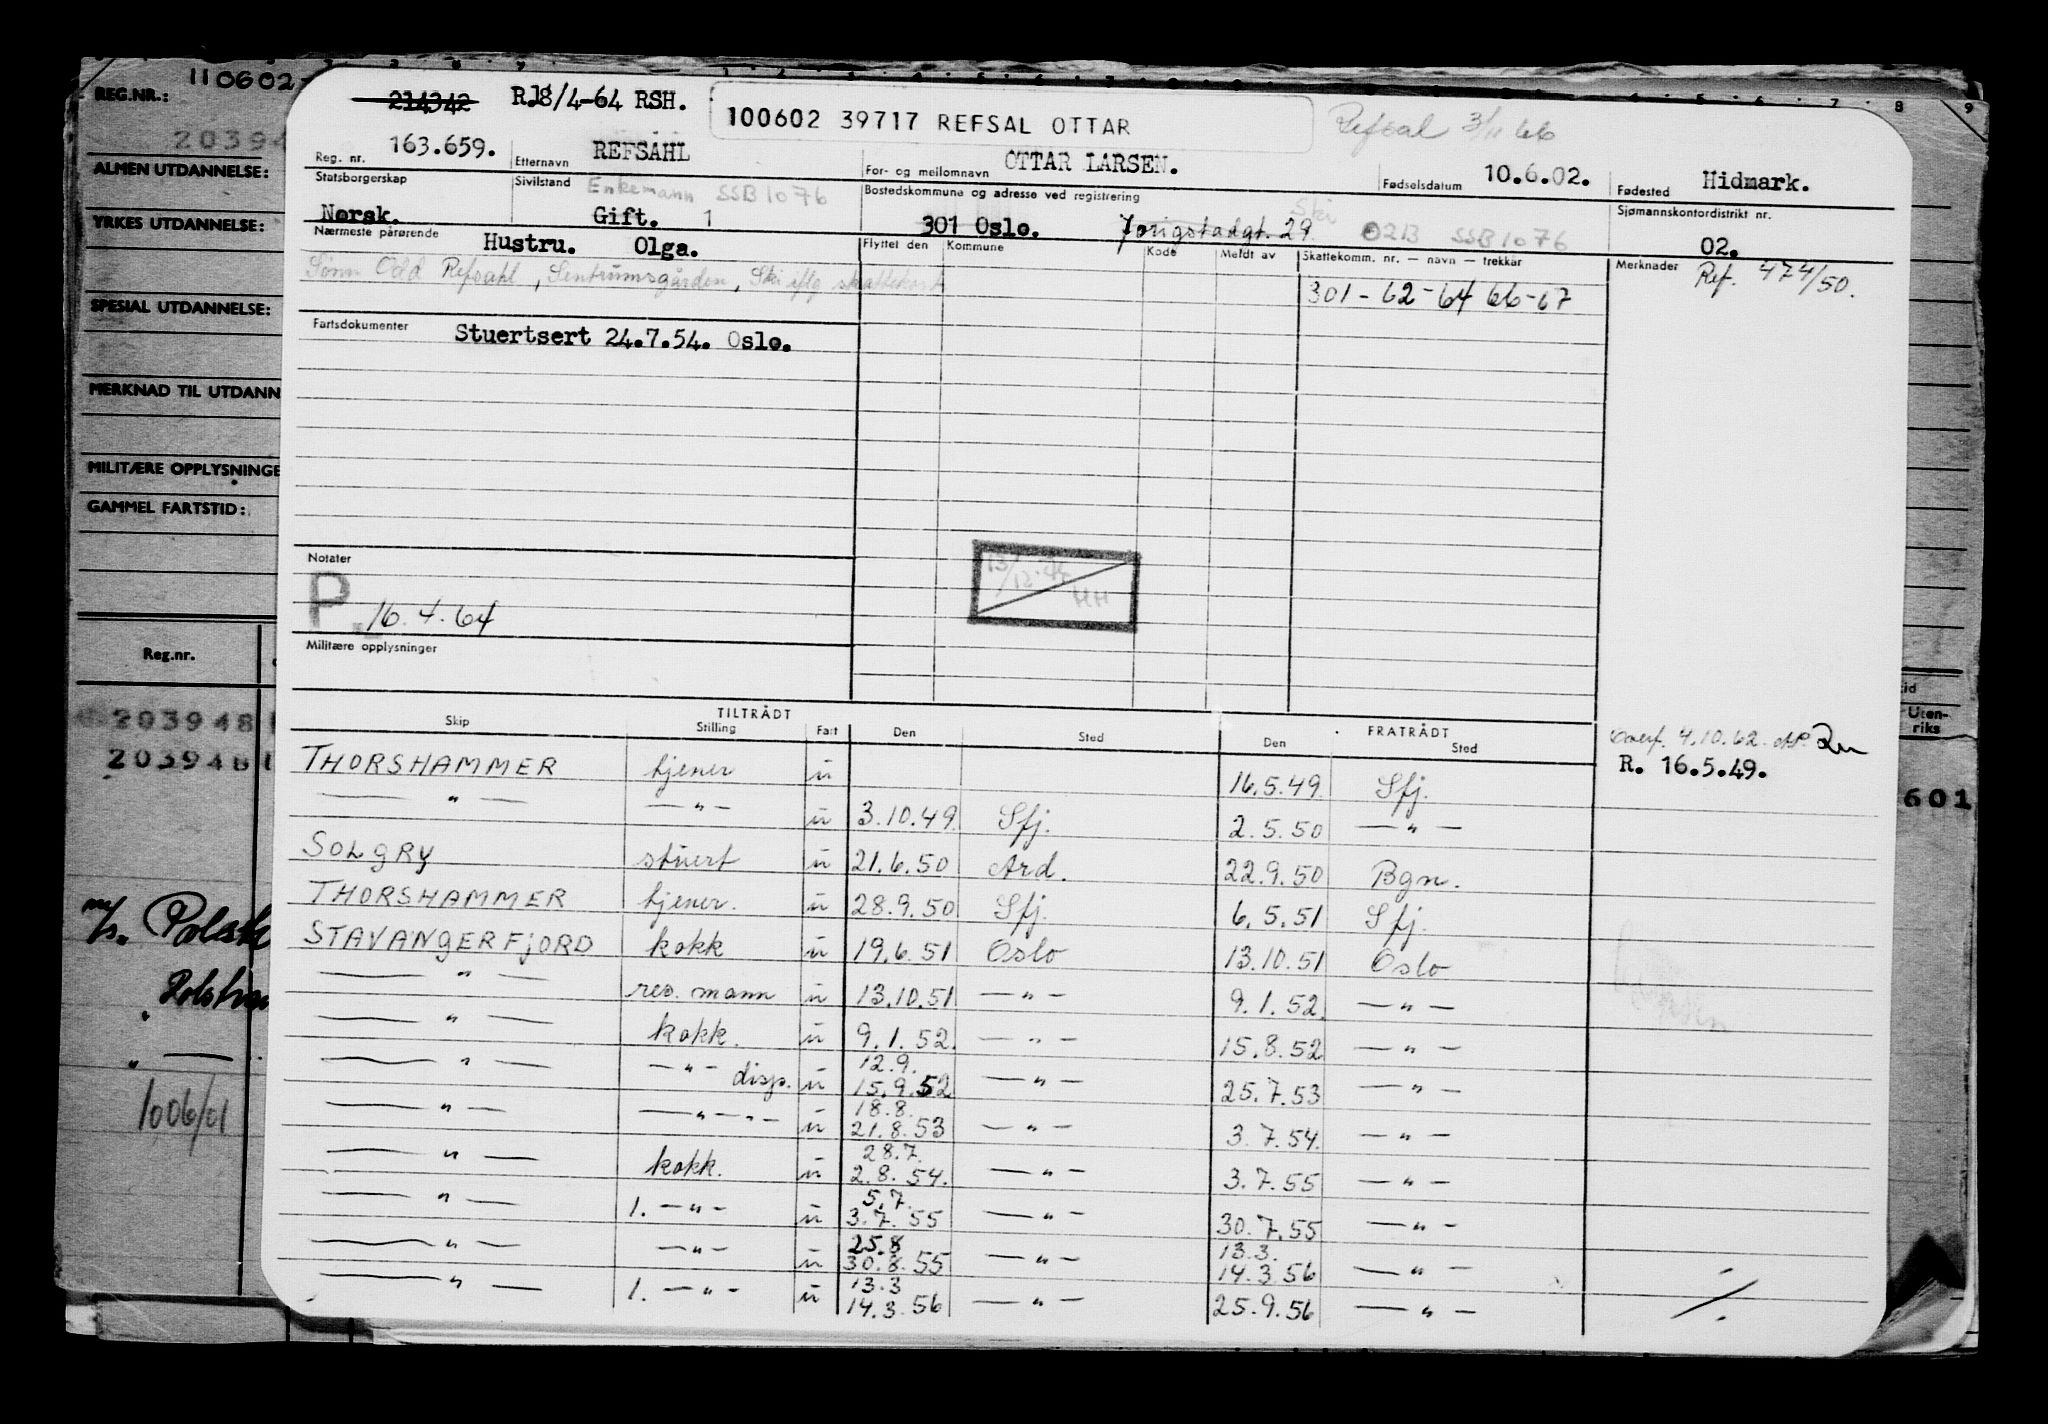 110602-
REG.NR.:
20394
ALMEN UTDANNELSE:
YRKES UTDANNELSE:
SPESIAL UTDANNELSE:
MERKNAD TIL UTDANN
MILITÆRE OPPLYSNINGE
GAMMEL FARTSTID:
Reg.nr.
203948
203948
m/s. Polsk
1006/01
214342 R.18/4-64 RSH.
100602 39717 REFSAL OTTAR
Refsal 3/11 66
Reg. nr. 163.659. Etternavn REFSAHL For- og mellomnavn OTTAR LARSEN. Fødselsdatum 10.6.02. Fødested Hidmark.
Statsborgerskap Norsk. Sivilstand Enkemann SSB 1076 Gift. 1 Bostedskommune og adresse ved registrering 301 Oslo. 29 Ski 0213 SSB 1076 Sjømannskontordistrikt nr. 02.
Nærmeste pårørende Hustru. Olga. Flyttet den Kommune Kode Meldt av Skattekomm. nr. — navn — trekkår Merknader Ref. 474/50.
Sønn Odd Refsahl, Sentrumsgården, Ski iflg skattekort
301 - 62-64 66-67
Fartsdokumenter Stuertsert 24.7.54. Oslo.
Notater
P. 16.4.64
13/12. HH
Militære opplysninger
TILTRÅDT FRATRÅDT
Skip Stilling Fart Den Sted Den Sted
4.10.62.
R. 16.5.49.
THORSHAMMER tjener u 16.5.49 Sfj.
— " — — " — u 3.10.49 Sfj. 2.5.50 — " —
SOLGRY stuert u 21.6.50 Ard. 22.9.50 Bgn.
THORSHAMMER tjener. u 28.9.50 Sfj. 6.5.51 Sfj.
STAVANGERFJORD kokk u 19.6.51 Oslo 13.10.51 Oslo
— " — res. mann u 13.10.51 — " — 9.1.52. — " —
— " — kokk. u 9.1.52. — " — 15.8.52 — " —
— " — — " — disp. u 12.9. 15.9.52 — " — 25.7.53 — " —
— " — — " — " — u 18.8. 21.8.53 — " — 3.7.54. — " —
— " — kokk. u 28.7. 2.8.54. — " — 3.7.55 — " —
— " — 1. — " — u 5.7. 3.7.55 — " — 30.7.55 — " —
— " — — " — u 25.8 30.8.55 — " — 13.3. 14.3.56 — " —
— " — 1. — " — u 13.3 14.3.56 — " — 25.9.56 — " —
./.
id
Uten-
riks
601